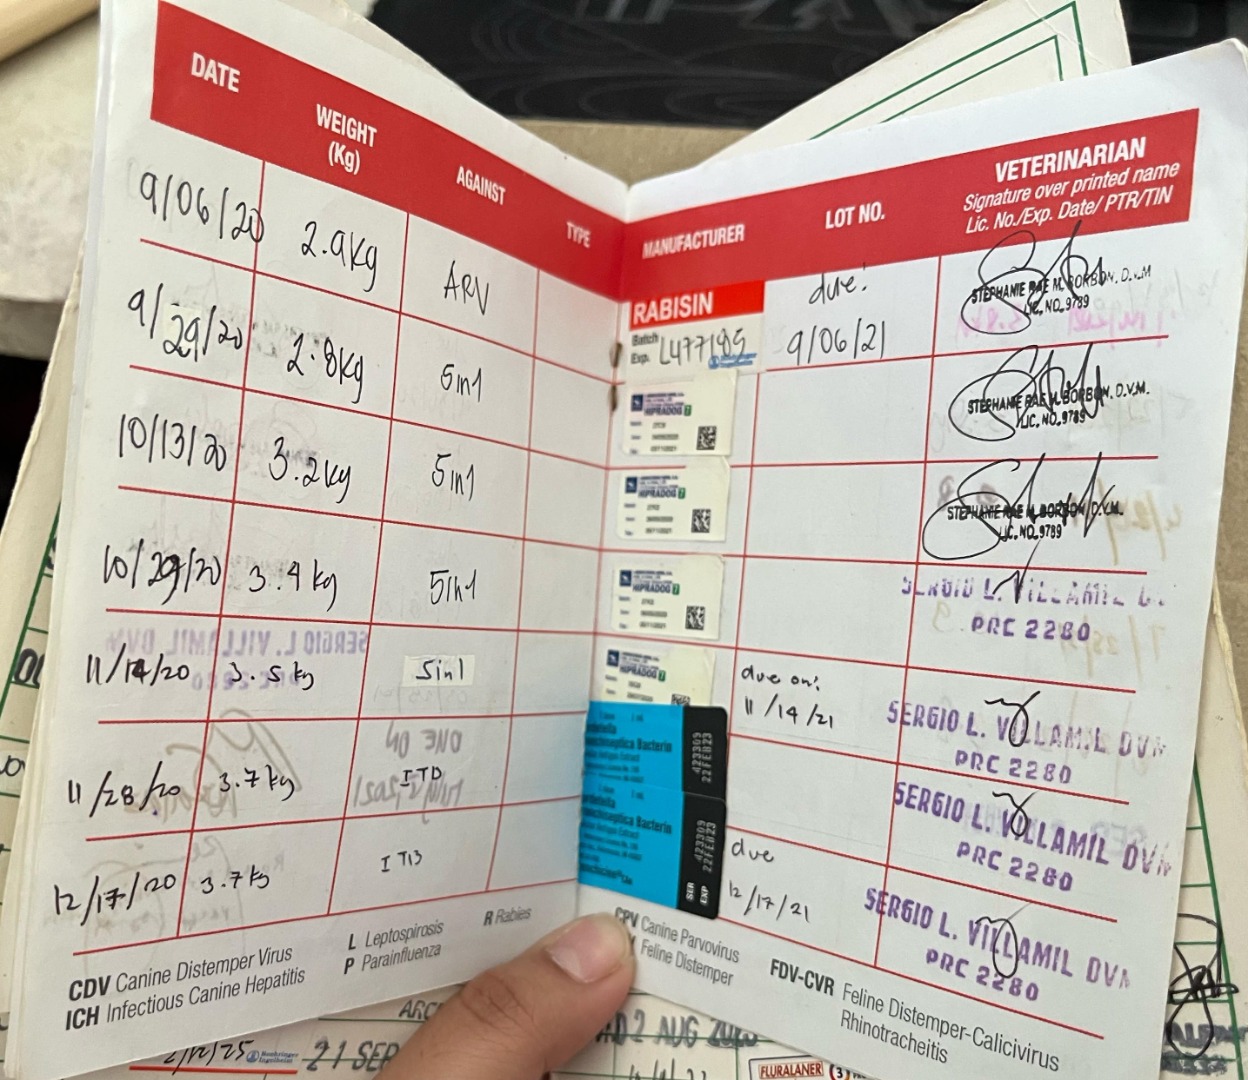 DATE
WEIGHT
(Kg)
AGAINST
TYPE
MANUFACTURER
LOT NO.
VETERINARIAN
Signature over printed name
Lic. No./Exp. Date/ PTR/TIN
9/06/20 2.9kg ARV
RABISIN
Batch
Exp. L477195
due:
9/06/21
STEPHANIE RAE M. BORBON, D.V.M
LIC. NO. 9789
9/29/20 2.8kg 5in1
HIPRADOG 7
STEPHANIE RAE M. BORBON, D.V.M.
LIC. NO. 9789
10/13/20 3.2kg 5in1
HIPRADOG 7
STEPHANIE RAE M. BORBON, D.V.M.
LIC. NO. 9789
10/29/20 3.4kg 5in1
HIPRADOG 7
SERGIO L. VILLAMIL
PRC 2280
11/14/20 3.5kg 5in1
HIPRADOG 7
due on:
11/14/21
SERGIO L. VILLAMIL DVM
PRC 2280
11/28/20 3.7kg
Bacterin
423309
22FEB23
SERGIO L. VILLAMIL DVM
PRC 2280
12/17/20 3.7kg
Bacterin
SER 423309
EXP 22FEB23
due
12/17/21
SERGIO L. VILLAMIL DVM
PRC 2280
CDV Canine Distemper Virus
ICH Infectious Canine Hepatitis
L Leptospirosis
P Parainfluenza
R Rabies
CPV Canine Parvovirus
Feline Distemper
FDV-CVR Feline Distemper-Calicivirus
Rhinotracheitis
Boehringer
Ingelheim
21 SEP
2 AUG
FLURALANER